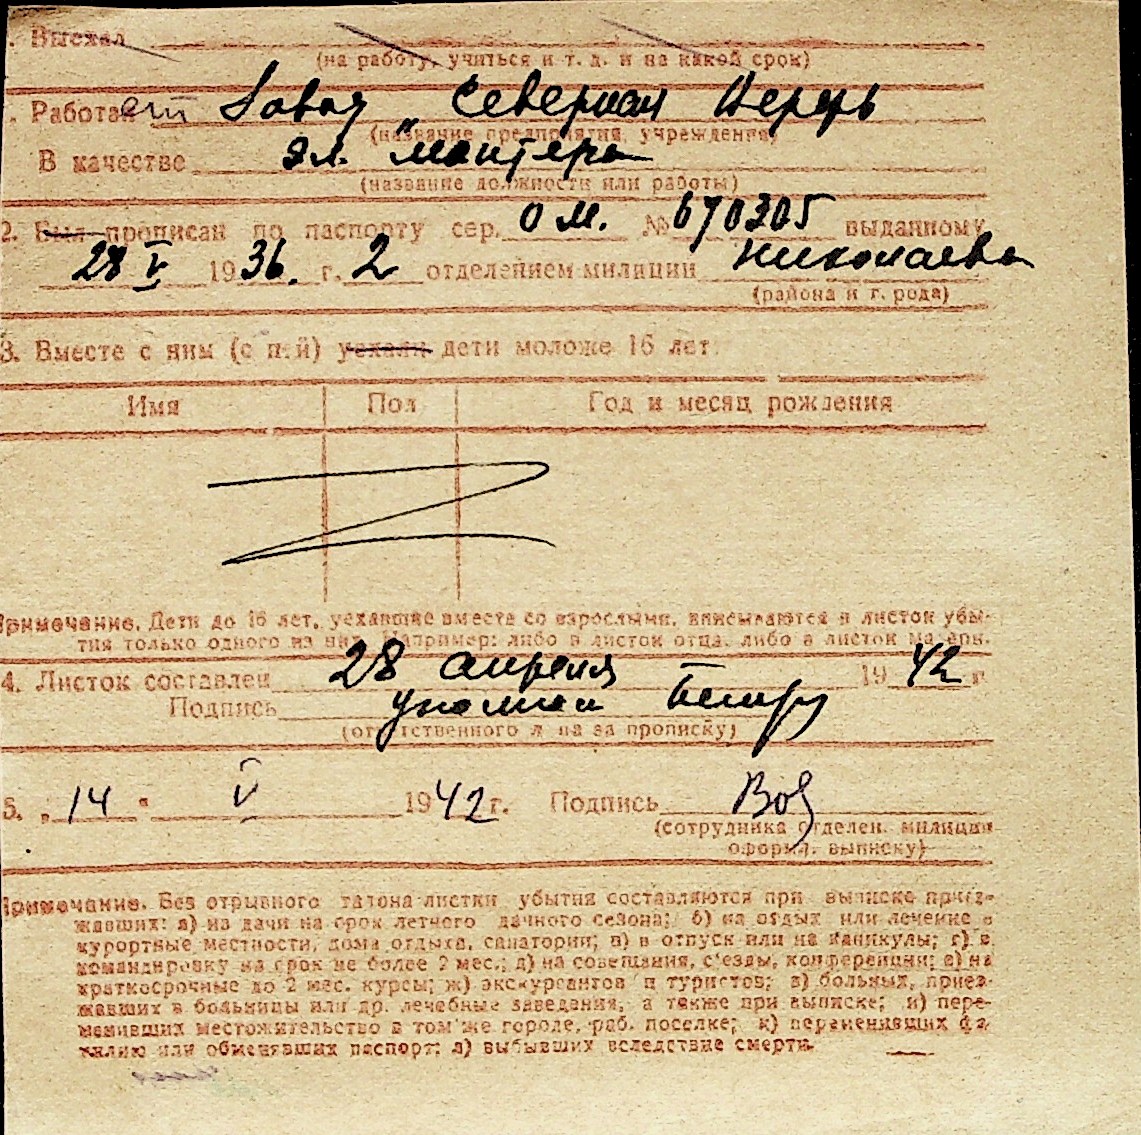 . Выехал
(на работу, учиться и т. д. и на какой срок)
. Работает Завод „Северная Верфь
(название предприятия, учреждения)
В качестве эл. монтера
(название должности или работы)
2. Был прописан по паспорту сер. О М. № 670305 выданному
28 V 1936. г. 2 отделением милиции Николаева
(района и г. рода)
3. Вместе с ним (с ней) уехали дети моложе 16 лет:
Имя Пол Год и месяц рождения
Примечание. Дети до 16 лет, уехавшие вместе со взрослыми, вписываются в листок убы-
тия только одного из них. Например: либо в листок отца, либо в листок матери.
4. Листок составлен 28 апреля 1942 г.
Подпись
(ответственного лица за прописку)
5. „14" V 1942 г. Подпись
(сотрудника отделен. милиции
оформ. выписку)
Примечание. Без отрывного талона листки убытия составляются при выписке приез-
жавших: а) из дачи на срок летнего дачного сезона; б) на отдых или лечение в
курортные местности, дома отдыха, санатории; в) в отпуск или на каникулы; г) в
командировку на срок не более 2 мес.; д) на совещания, съезды, конференции; е) на
краткосрочные до 2 мес. курсы; ж) экскурсантов и туристов; з) больных, приез-
жавших в больницы или др. лечебные заведения, а также при выписке; и) пере-
менивших местожительство в том же городе, раб. поселке; к) переменивших фа-
милию или обменявших паспорт; л) выбывших вследствие смерти.